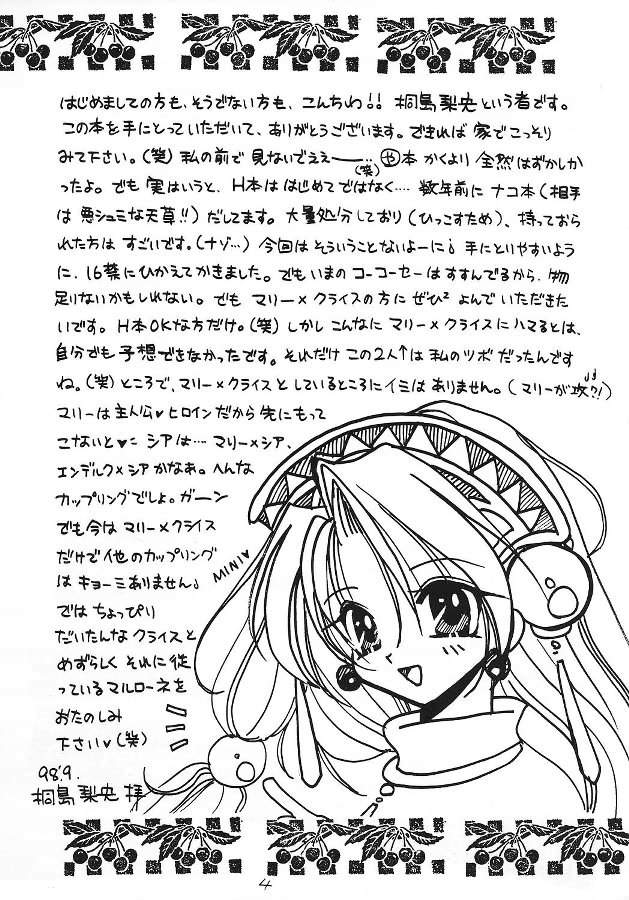 はじめましての方も、そうでない方も、こんちわ!! 桐島梨央という者です。
この本を手にとっていただいて、ありがとうございます。できれば家でこっそり
みて下さい。(笑) 私の前で見ないでええーー… や本かくより全然はずかしか
(笑)
ったよ。でも実はいうと、H本ははじめてではなく…. 数年前にナコ本(相手
は悪シュミな天草!!) だしてます。大量処分しており(ひっこすため)、持っておら
れた方はすごいです。(ナゾ…) 今回はそういうことないよーに! 手にとりやすいよう
に、16禁にひかえてかきました。でもいまのコーコーセーはすすんでるから、物
足りないかもしれない。でもマリー×クライスの方にぜひ²よんでいただきた
いです。H本OKな方だけ。(笑) しかしこんなにマリー×クライスにハマるとは、
自分でも予想できなかったです。それだけこの2人↑は私のツボだったんです
ね。(笑) ところで、マリー×クライスとしているところにイミはありません。(マリーが攻?!)
マリーは主人公♥ヒロインだから先にもって
こないと♥ シアは…. マリー×シア、
エンデルク×シアかなあ。へんな
カップリングでしょ。ガーン
でも今はマリー×クライス
だけで他のカップリング
はキョーミありません。
ではちょっぴり
だいたんなクライスと
めずらしくそれに従
っているマルローネを
おたのしみ
下さい♥(笑)
MINI♥
98'9.
桐島梨央 拝
4